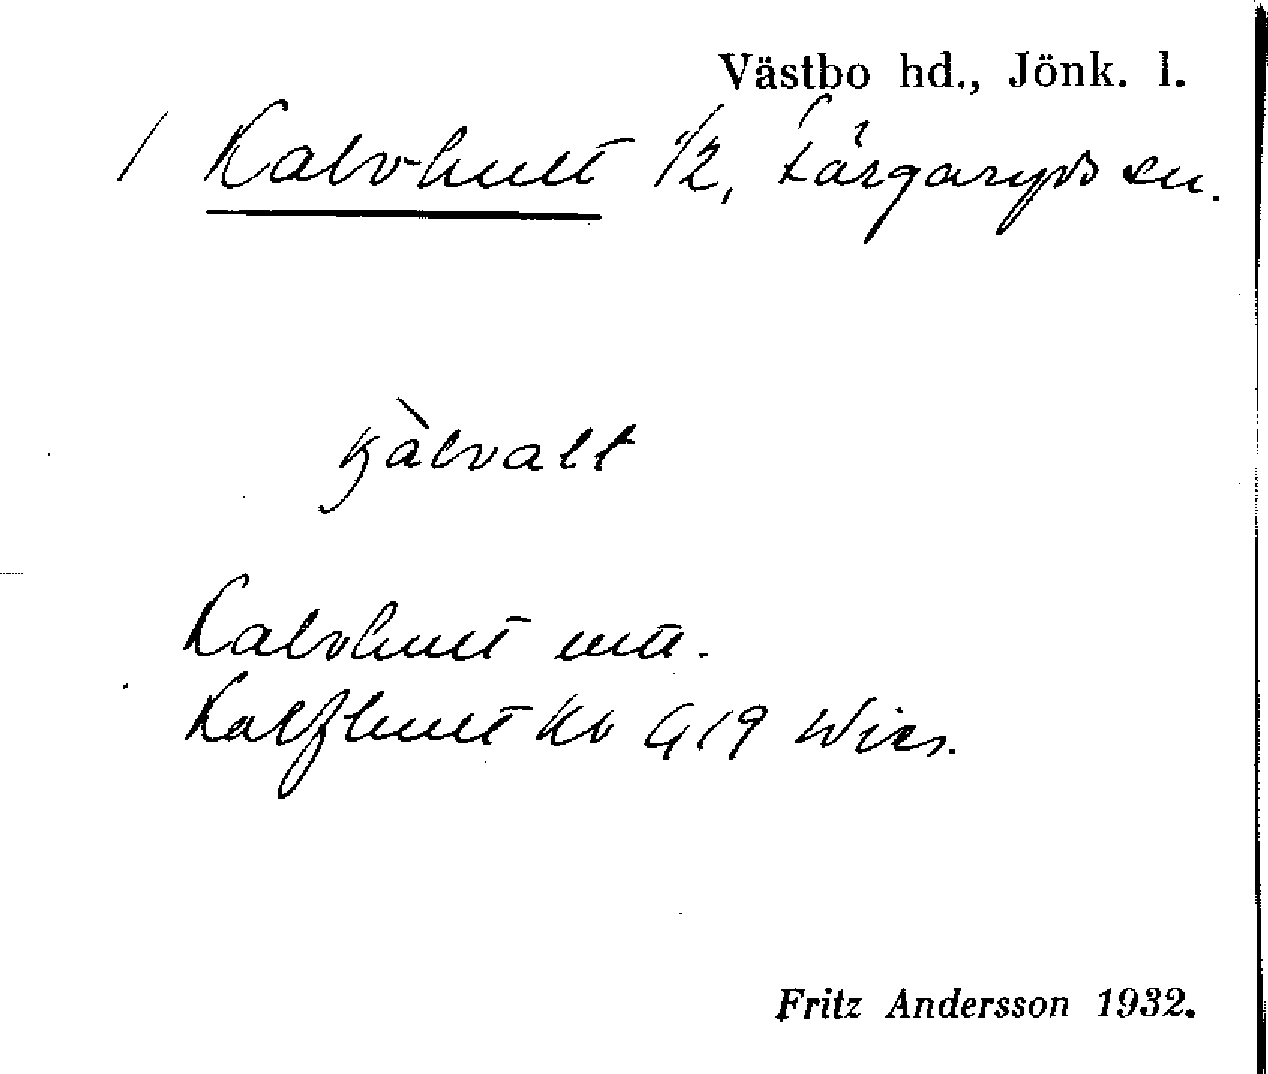 Västbo hd., Jönk. l.
1 Kalv-hult 1/2, Färgaryds sn.
kàlvalt
Kalvhult mtl.
Kalfhult Kb G 19
Fritz Andersson 1932.